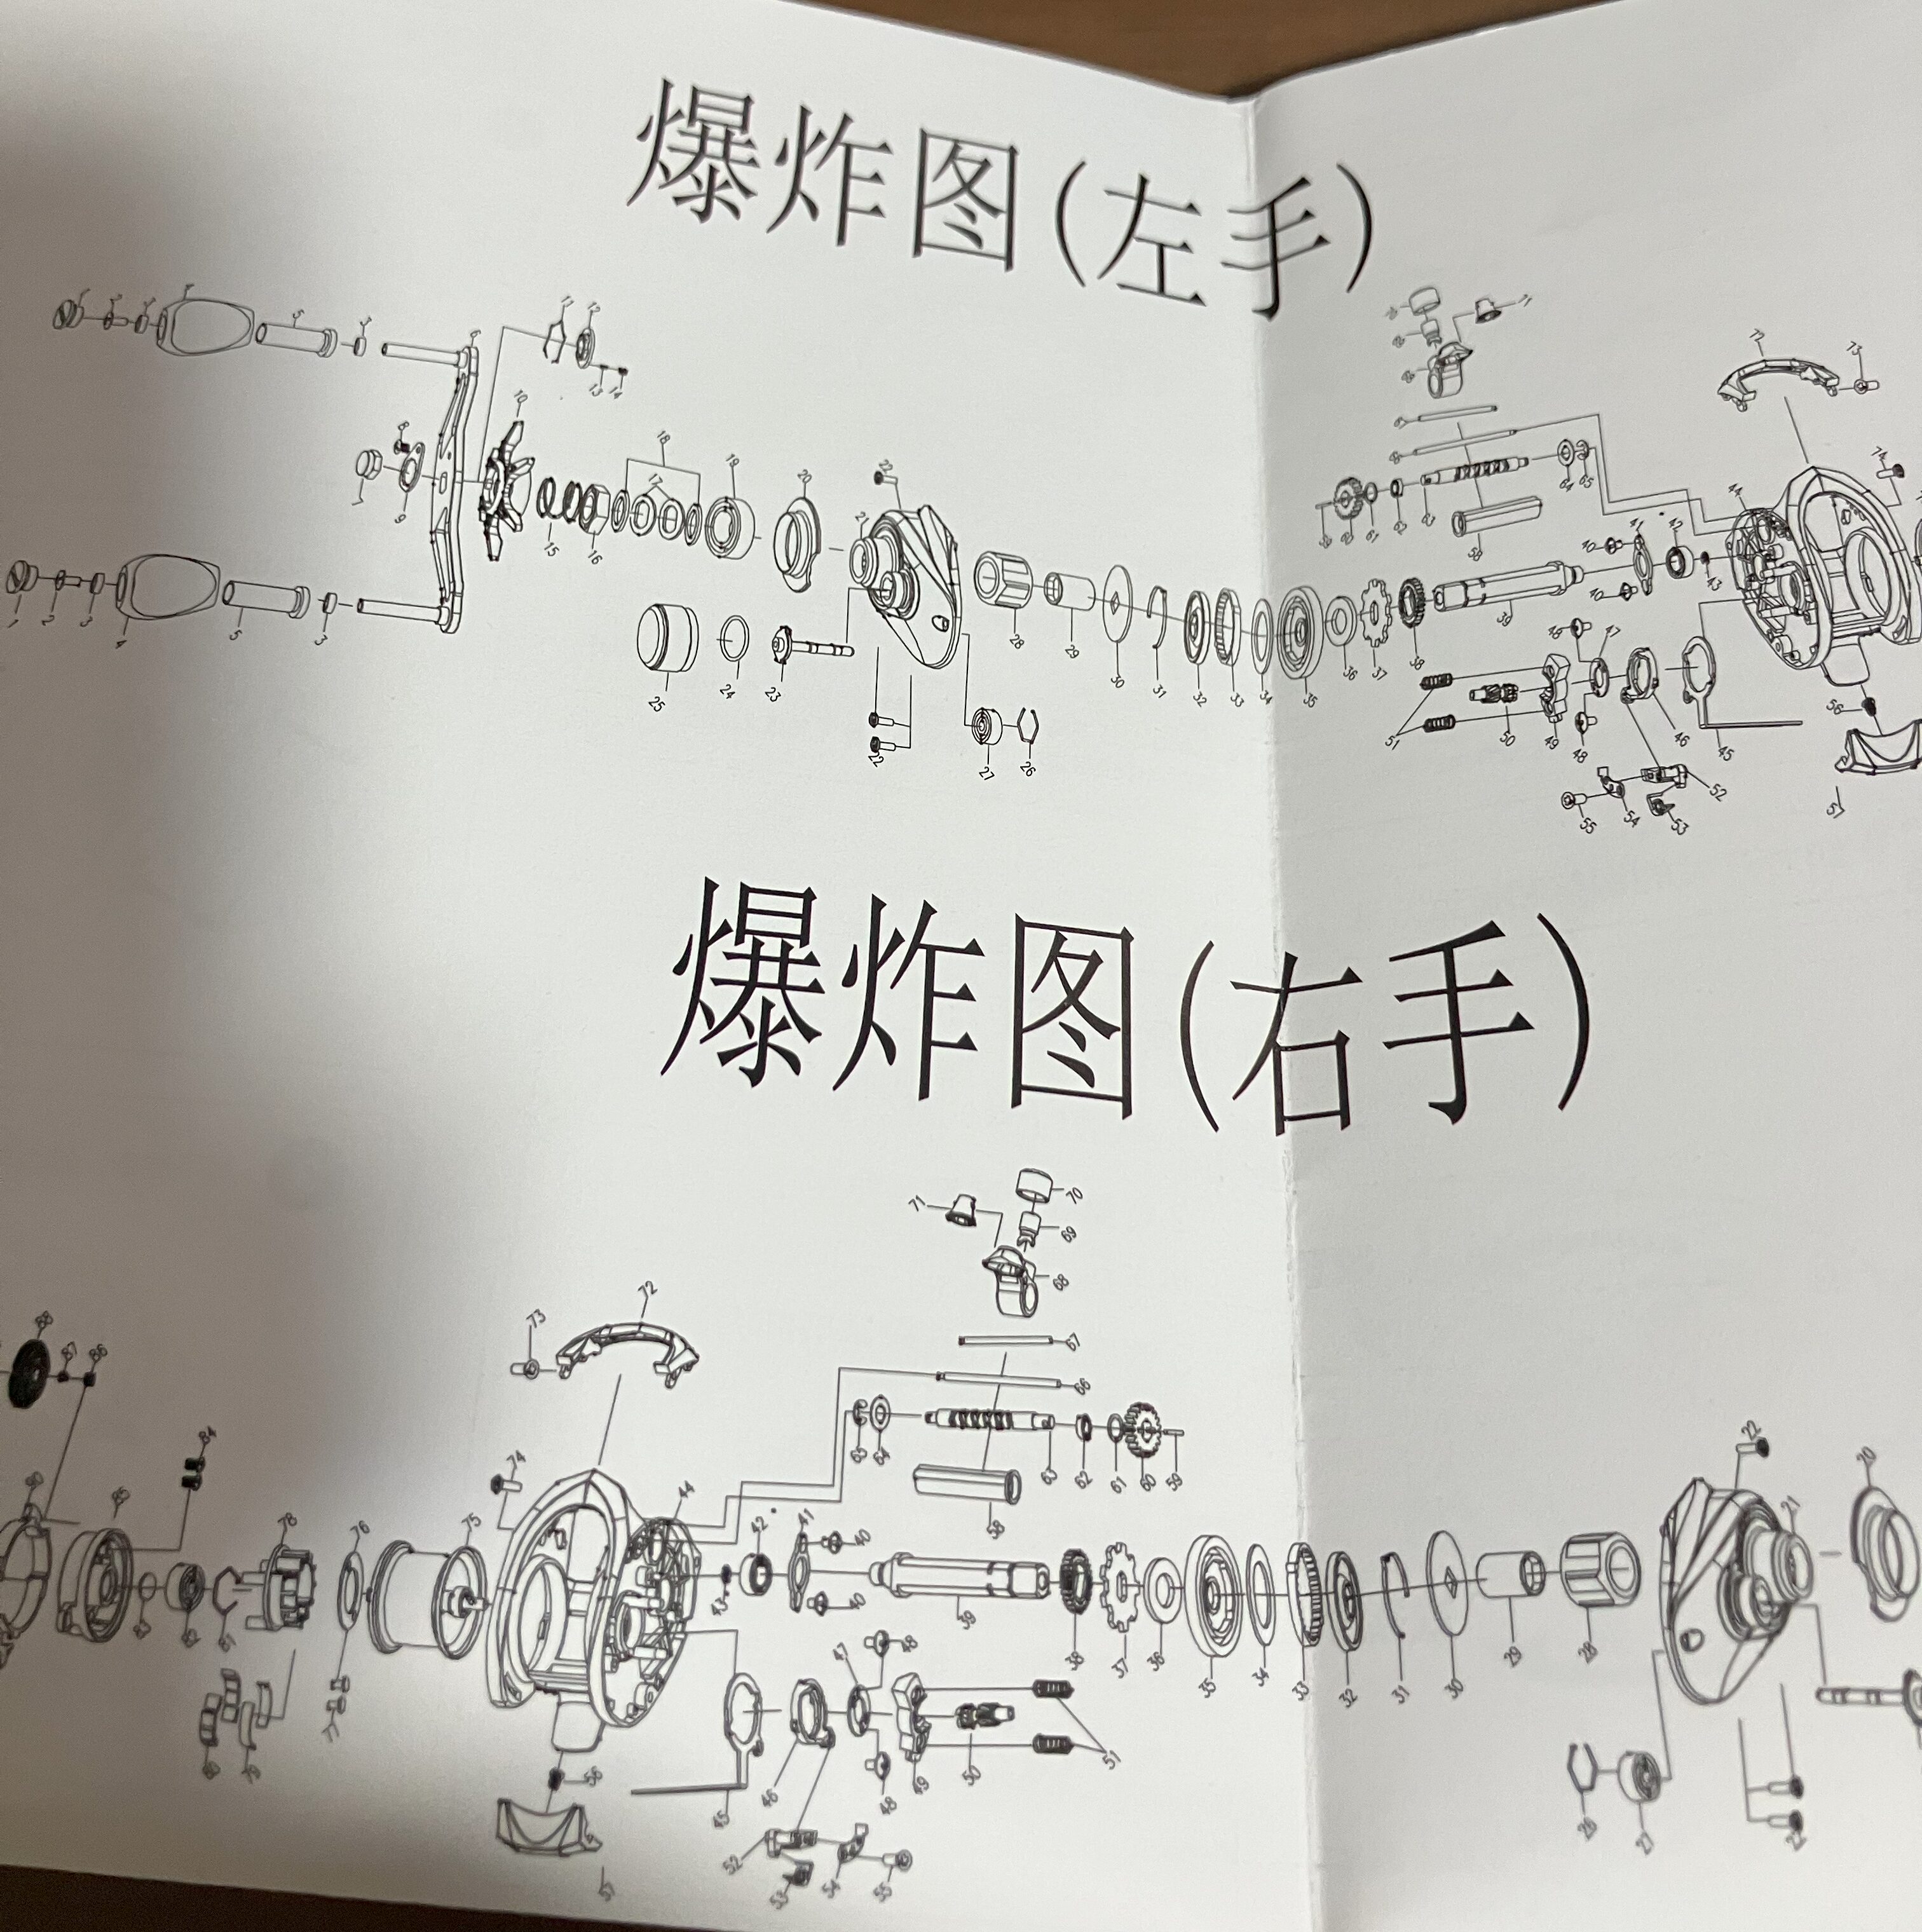 爆炸图(左手)
11 12
13 14
6
5
3
8
7
9
10
18
17
19
20
22
21
15
16
1 2 3 4 5 3
25
24
23
22
27
26
28
29
30
31
32
33
34
35
36
37
38
39
40
41
42
43
44
40
48
47
51
50
49
48
46
45
52
53
54
55
56
57
58
72
73
74
爆炸图(右手)
70
71
69
68
72
73
67
66
65
64
63
62
61
60
59
58
74
84
78
76
75
44
42
41
40
43
40
39
38
37
36
35
34
33
32
31
30
29
28
22
21
20
47
48
51
50
49
48
46
45
56
57
52
53
54
55
77
26
27
22